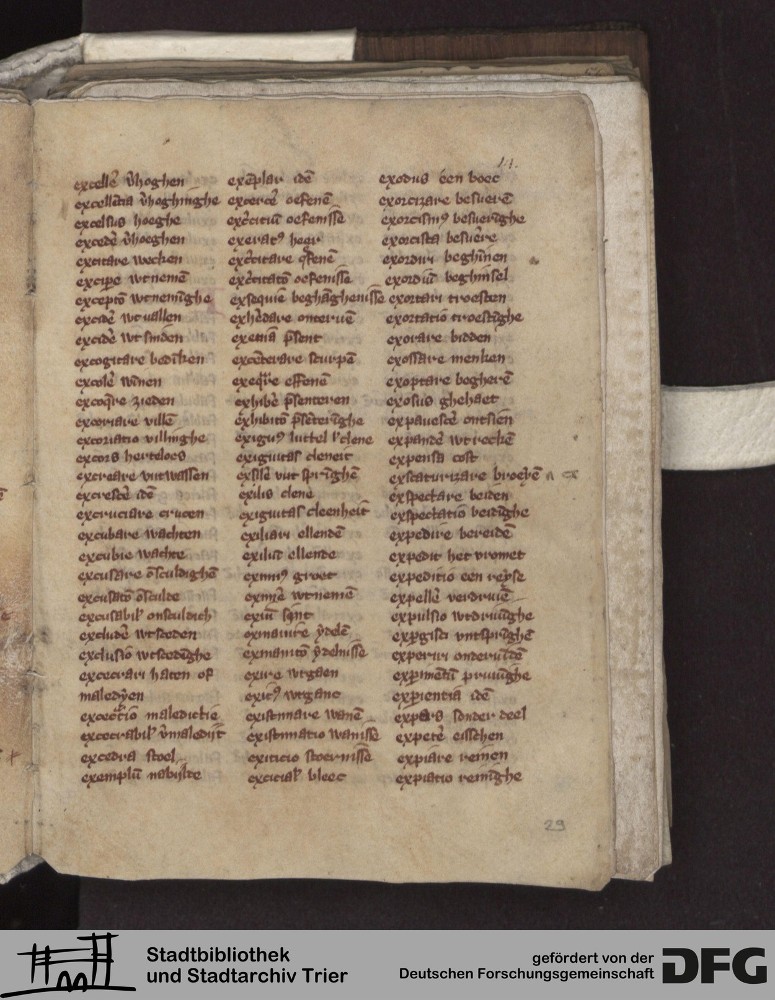 excellē v̄hoghen
excellētia v̄hoghinghe
excelsus hoeghe
excedē v̄hoeghen
excitare wecken
excipe wtnemē
exceptō wtnemīghe
excidē wtvallen
excidē wtsniden
excogitare bedīken
excolē winen
excoq̄re zieden
excoriare villē
excoriatio villinghe
excors herteloes
excreare vutwassen
excrescē idē
excruciare crucen
excubare wachten
excubie wachte
excusare ōsculdighē
excusatō ōsculde
excusabil' onsculdich
excludē wtsceden
exclusio wtscedīghe
execrari haten of
maledyen
execrabil' v̄maledijt
excedra stoel
exemplū
exēplar idē
exercē oefenē
exercitiū oefenissē
exercitare
exercitatō oefenissē
exsequie beghāghenissē
exhēdare onteruē
exenia p̄sent
excēterare scurpē
exeq̄re effenē
exhibē p̄senteren
exhibitō p̄sēterīghe
exiguꝰ luttel l' clene
exiguitas cleneit
exsilē vut sprīghē
exilis clene
exiguitas cleenheit
exiliari ellendē
exiliū ellende
eximiꝰ groet
eximē wtnemē
exinanire ydelē
exinanitō ydelnissē
exire wtgaen
exitꝰ wtganc
existimare wanē
existimatio wanissē
exodus een boec
exorcizare besuerē
exorcismꝰ besuerīghe
exorcista besuēre
exordiri beghīnen
exordiū beghinsel
exortari troesten
exortatio troestīghe
exorare bidden
exoptare begherē
exosus ghehaet
expauescē ontsien
expandē wtreckē
expensa cost
exscaturizare broeyē
exspectare beiden
exspectatio beidīghe
expedire bereidē
expedit het vromet
expeditio een reyse
expellē verdriuē
expulsio wtdriuīghe
exꝑgisci vntsprīghē
experiri onderuīdē
exꝑimētū priuūghe
exꝑientia idē
expers sonder deel
expetē eisschen
expiare reinen
expiatio reinīghe
29
Stadtbibliothek
und Stadtarchiv Trier
gefördert von der
Deutschen Forschungsgemeinschaft
DFG